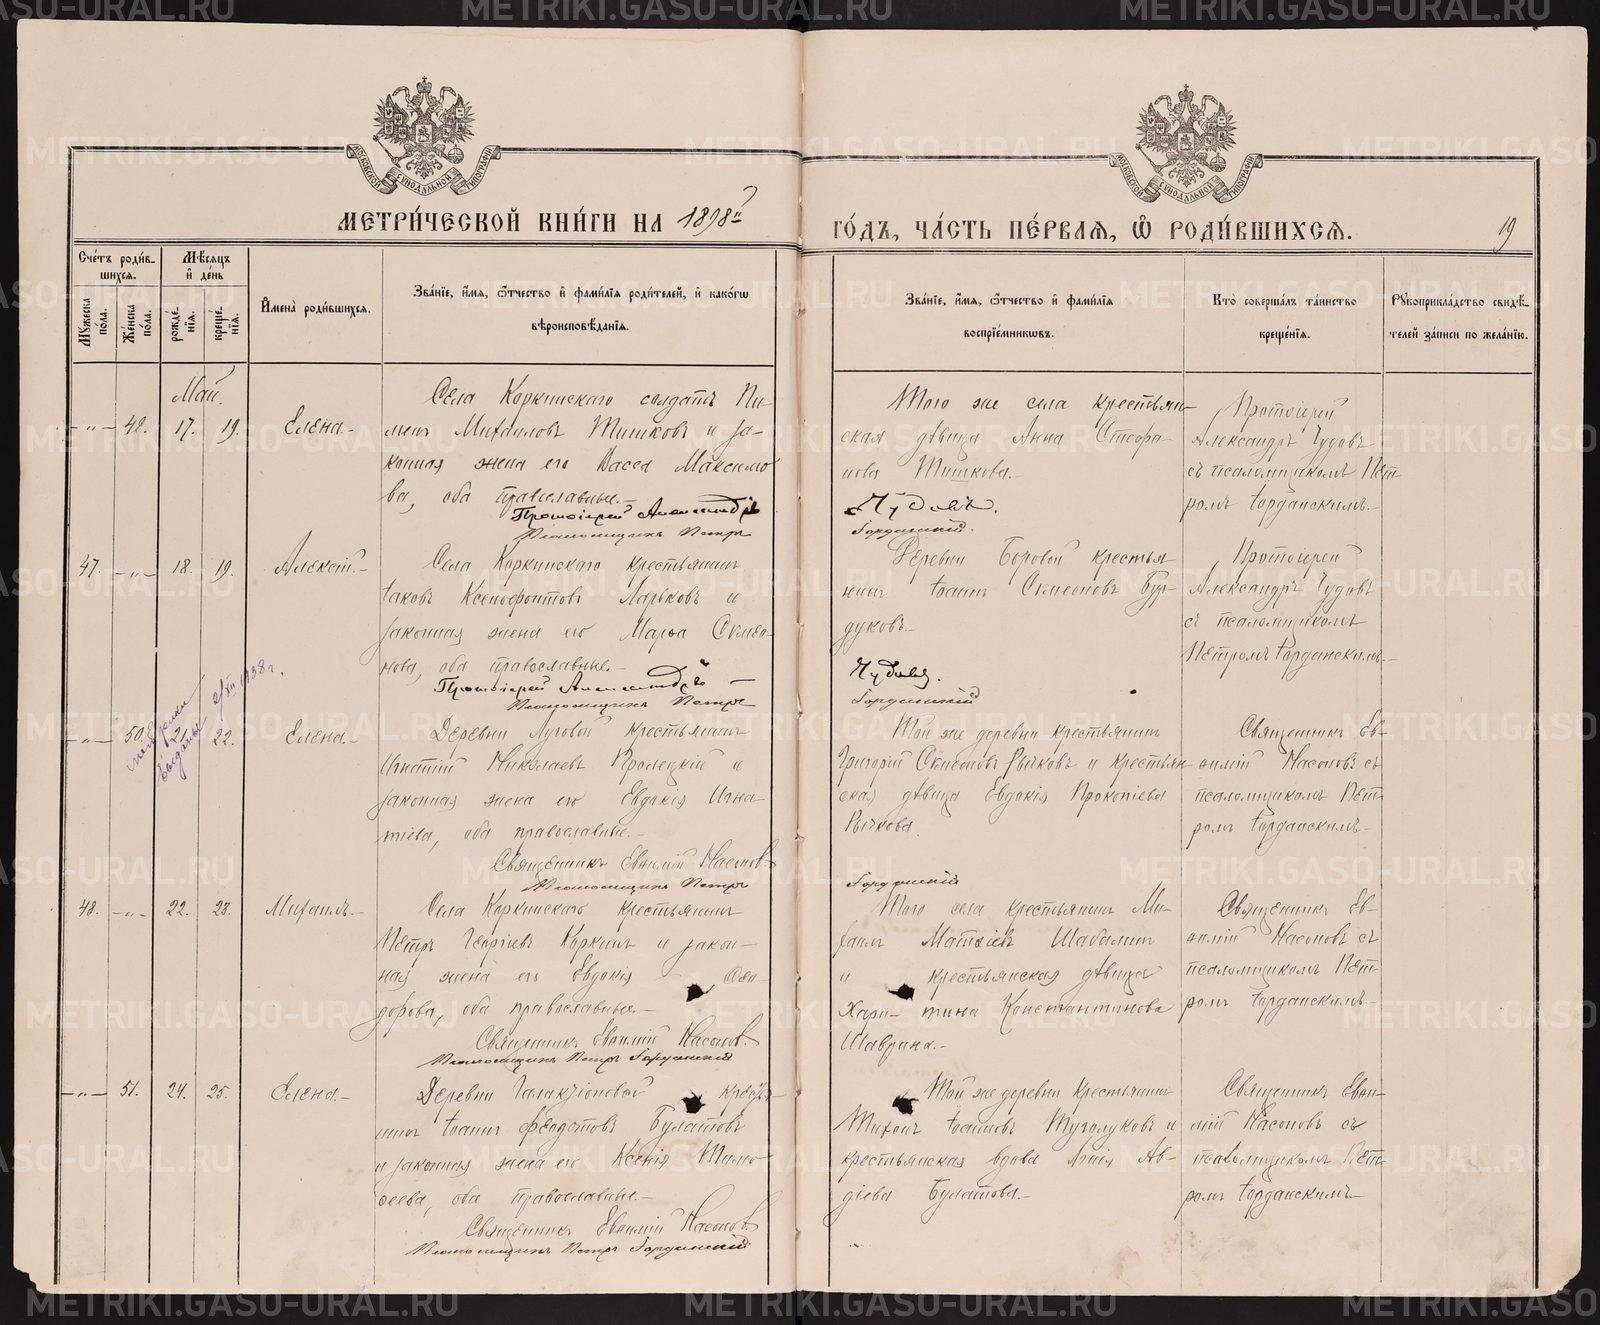 МЕТРИ́ЧЕСКОЙ КНИ́ГИ НА 1898й
ГО́ДЪ, ЧА́СТЬ ПЕ́РВАЯ, Ѡ҆ РОДИ́ВШИХСЯ.
19
Сче́тъ роди́вшихся.
Мѣ́сяцъ и҆ де́нь
Му́жеска по́ла.
Же́нска по́ла.
рожде́нїя.
креще́нїя.
И҆мена̀ роди́вшихся.
Зва́нїе, и҆́мя, ѻ҆́тчество и҆ фами́лїя роди́телей, и҆ како́гѡ
вѣроисповѣ́данїя.
Зва́нїе, и҆́мя, ѻ҆́тчество и҆ фами́лїя
воспрїе́мникѡвъ.
Кто̀ соверша́лъ та́инство
креще́нїя.
Рукоприкла́дство свидѣ́-
телей за́писи по жела́нїю.
Май.
-"- 17. 19. Елена.-
Села Коркинскаго солдатъ Пи-
менъ Михаиловъ Тишковъ и за-
конная жена его Васса Максимо
ва, оба православные.-
Протоіерей Александръ
Псаломщикъ Петръ
Того же села крестьян-
ская дѣвица Анна Стефа-
нова Тишкова.-
Чудовъ.
Іорданскій.
Протоіерей
Александръ Чудовъ
съ псаломщикомъ Пет-
ромъ Іорданскимъ.-
47. -"- 18. 19. Алексій.-
Села Коркинскаго крестьянинъ
Іаковъ Ксенофонтовъ Ларьковъ и
законная жена его Марѳа Симео-
нова, оба православные.-
Протоіерей Александръ
Псаломщикъ Петръ
Деревни Боровой крестья
нинъ Іоаннъ Симеоновъ Бур-
дуковъ.-
Чудовъ.
Іорданскій
Протоіерей
Александръ Чудовъ
съ псаломщикомъ
Петромъ Іорданскимъ.-
выданы 2/XII 1938 г.
-"- 50. 21. 22. Елена.-
Деревни Луговой крестьянинъ
Игнатій Николаевъ Пролецкій и
законная жена его Евдокія Игна-
тіева, оба православные.-
Священникъ Евѳимій Насоновъ
Псаломщикъ Петръ
Той же деревни крестьянинъ
Григорій Симеоновъ Рычковъ и крестьян
ская дѣвица Евдокія Прокопіева
Рычкова.
Іорданскій
Священникъ Ев-
ѳимій Насоновъ съ
псаломщикомъ Пет-
ромъ Іорданскимъ.-
48. -"- 22. 23. Михаилъ.-
Села Коркинскаго крестьянинъ
Петръ Георгіевъ Коркинъ и закон-
ная жена его Евдокія Ѳео-
дорова, оба православные.-
Священникъ Евѳимій Насоновъ.
Псаломщикъ Петръ Іорданскій
Того села крестьянинъ Ми-
хаилъ Матѳіевъ Шабалинъ
и крестьянская дѣвица
Хари- тина Константинова
Шаврина.-
Священникъ Ев-
ѳимій Насоновъ съ
псаломщикомъ Пет-
ромъ Іорданскимъ.-
-"- 51. 24. 25. Елена.-
Деревни Галактіоновой крестья-
нинъ Іоаннъ Ѳеодотовъ Булатовъ
и законная жена его Ксенія Тимо-
ѳеева, оба православные.-
Священникъ Евѳимій Насоновъ
Псаломщикъ Петръ Іорданскій
Той же деревни крестьянинъ
Тихонъ Іоанновъ Туголуковъ и
крестьянская вдова Ав-
діева Булатова.-
Священникъ Евѳи-
мій Насоновъ съ
псаломщикомъ Пет-
ромъ Іорданскимъ.-
METRIKI.GASO-URAL.RU